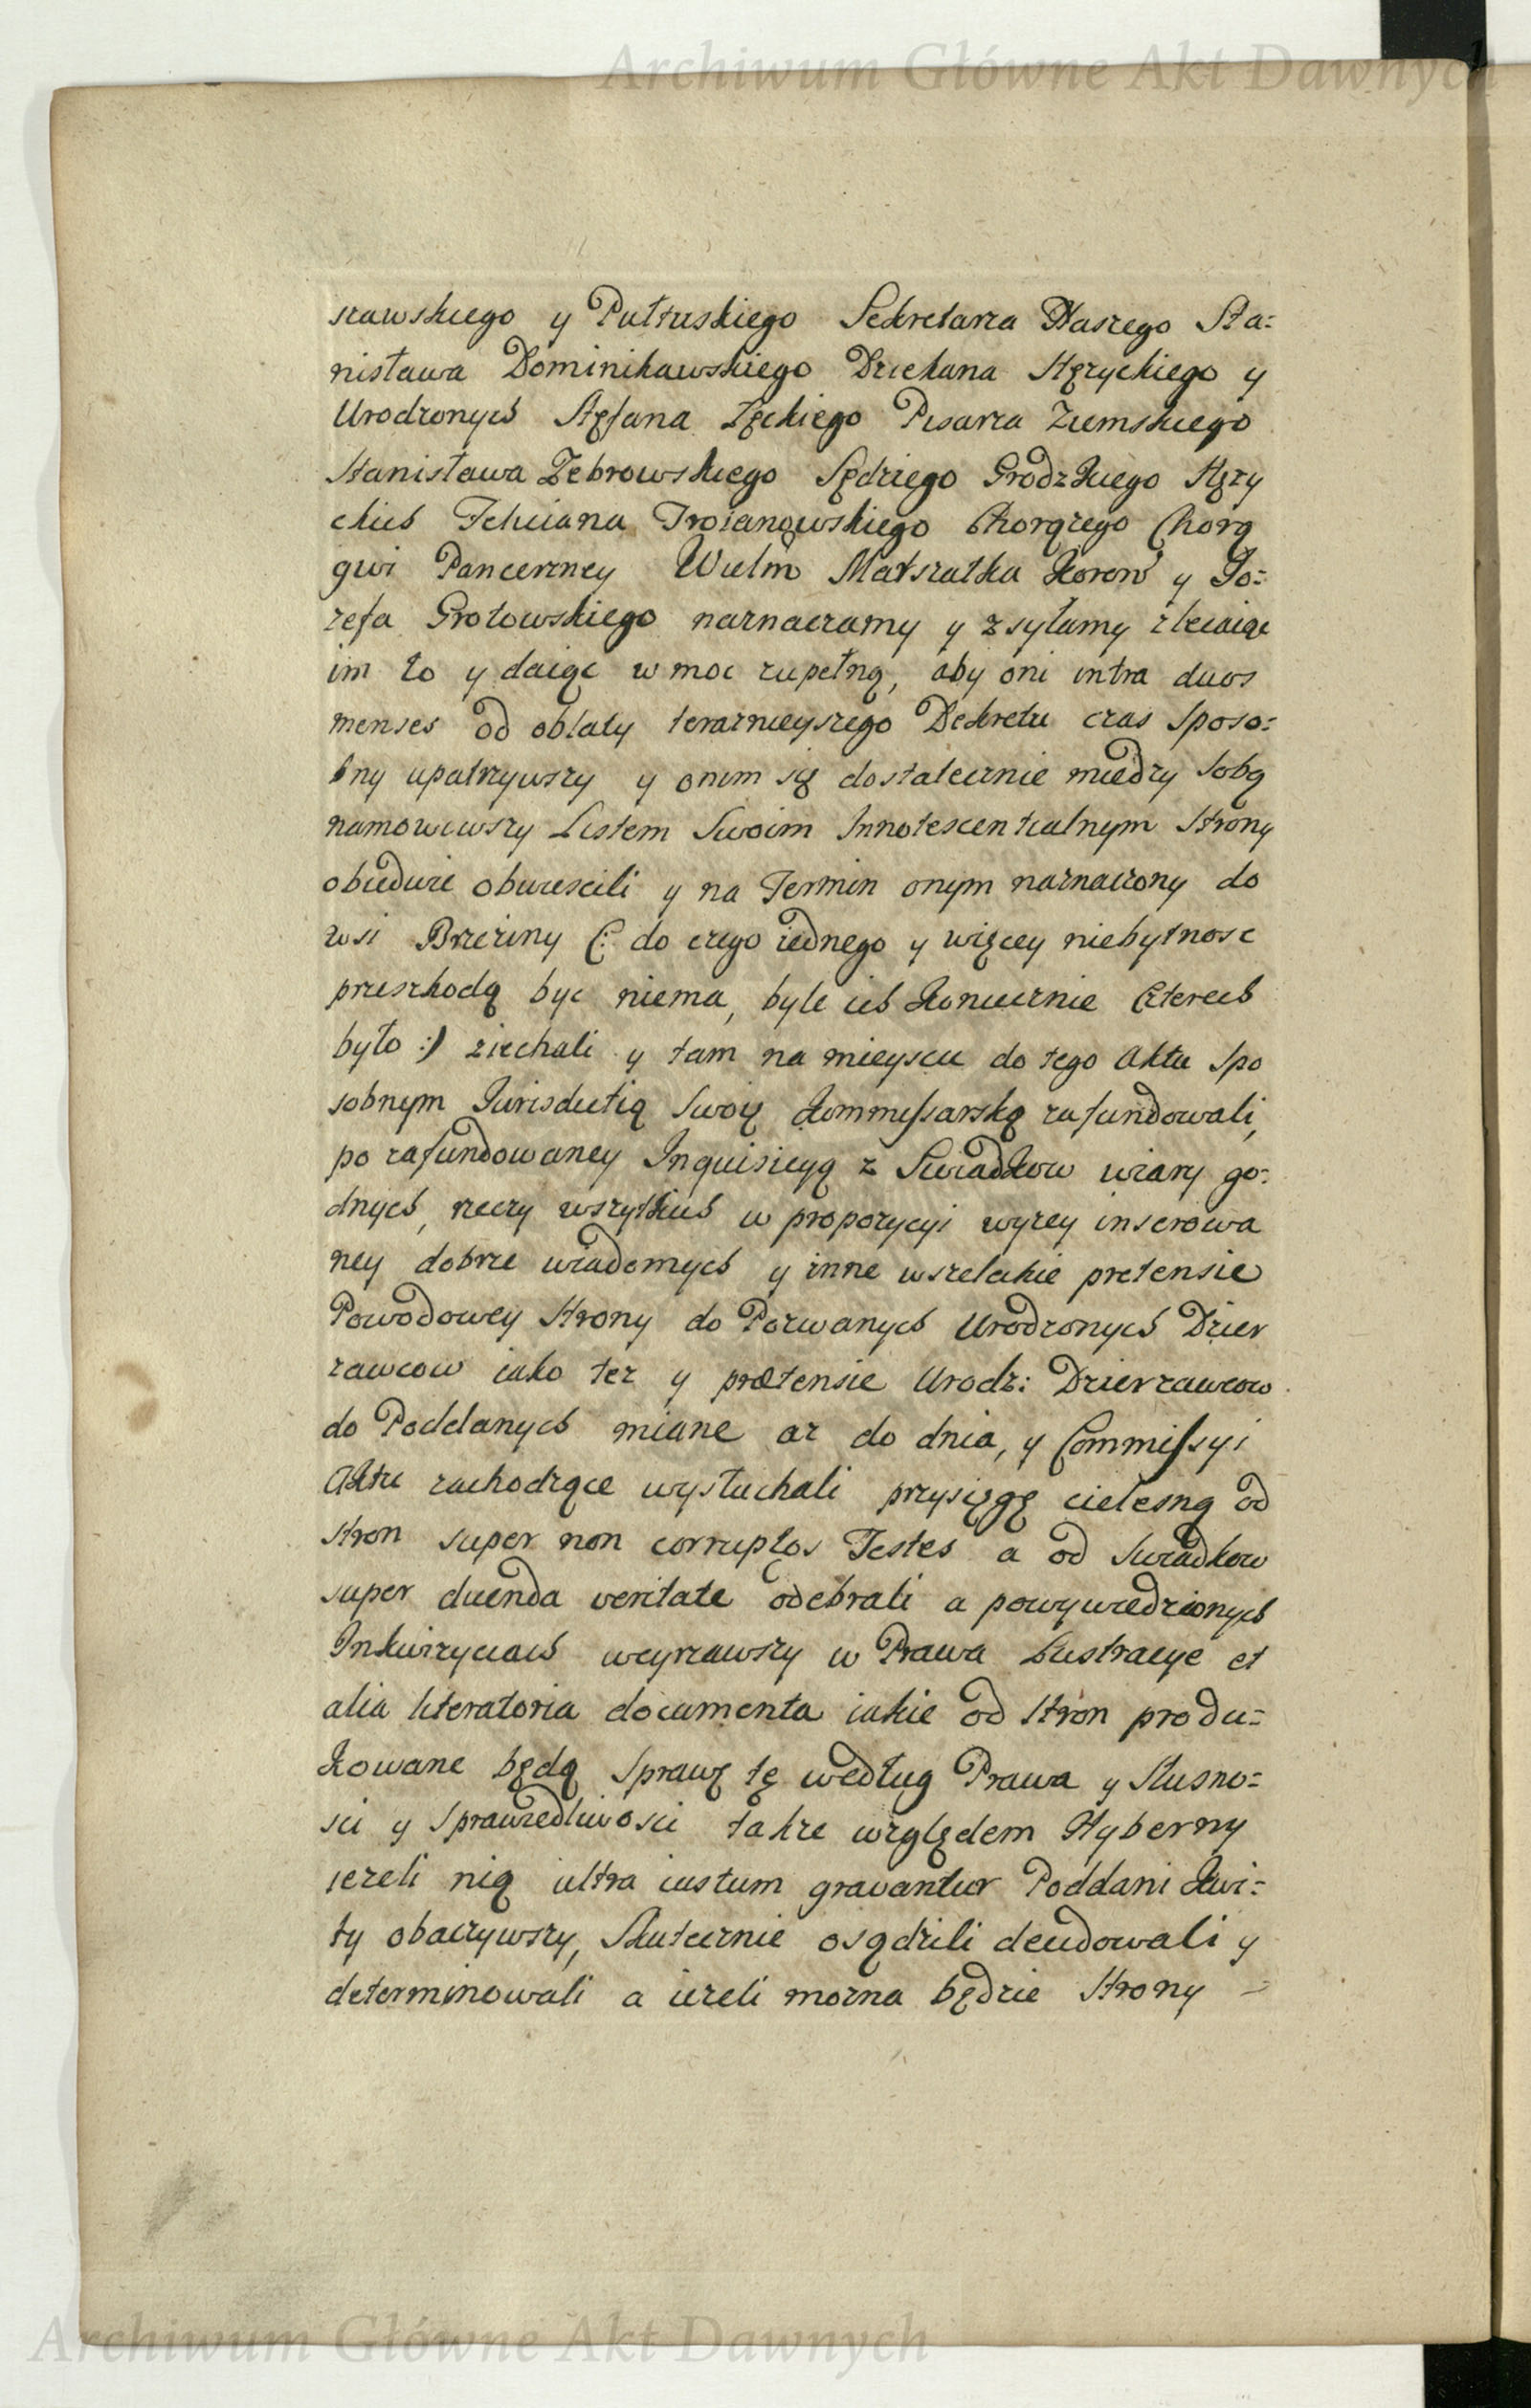 Archiwum Główne Akt Dawnych
szawskiego y Pułtuskiego Sekretarza Naszego Sta=
nisława Dominikawskiego Dziekana Stęzyckiego y
Urodzonych Stefana Zęckiego Pisarza Ziemskiego
Stanisława Zebrowskiego Sędziego Grodzkiego Stęzy
ckich Feliciana Troianowskiego Chorązego Chorą
gwi Pancerney Wielm Marszałka Koron y Jo=
zefa Grotowskiego naznaczamy y zsyłamy zlecaiąc
im to y daiąc w moc zupełną, aby oni intra duos
menses od oblaty teraznieyszego Dekretu czas sposo=
bny upatrzywszy y onim się dostatecznie miedzy sobą
namowiwszy Listem Swoim Innotescentialnym Strony
obiedwie obwiescili y na Termin onym naznaczony do
wsi Brzeziny (: do czego iednego y więcey niebytnosc
przeszkodą byc niema, byle ich Koniecznie Czterech
było :) ziechali y tam na mieyscu do tego Aktu spo
sobnym Jurisdictią Swoię Kommissarską zafundowali,
po zafundowaney Inquisicyą z Swiadkow wiary go=
dnych, rzeczy wszytkich w propozycyi wyzey inserowa
ney dobrze wiadomych y inne wszelakie pretensie
Powodowey Strony do Pozwanych Urodzonych Dzier
zawcow iako tez y prætensie Urodz: Dzierzawcow
do Poddanych miane az do dnia, y Commissyi
Aktu zachodzące wysłuchali przysięgę cielesną od
stron super non corruptos Testes a od swiadkow
super dicenda veritate odebrali a powywiedzionych
Inkwizyciach weyrzawszy w Prawa Lustracye et
alia literatoria documenta iakie od Stron produ=
kowane będą Sprawę tę według Prawa y Slusno=
sci y Sprawiedliwosci takze względem Hyberny
iezeli nią ultra iustum gravantur Poddani Kwi=
ty obaczywszy, Skutecznie osądzili decidowali y
determinowali a iezeli mozna będzie Strony =
Archiwum Główne Akt Dawnych